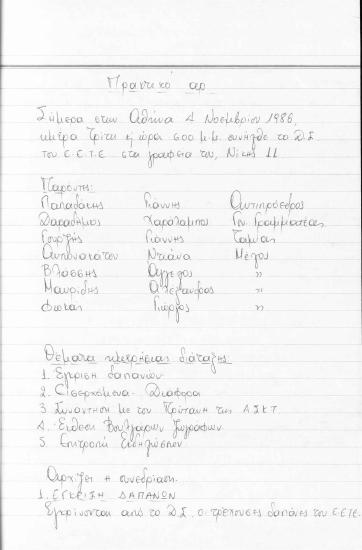 Πρακτικό αρ
Σήμερα στην Αθήνα 4 Νοεμβρίου 1986,
ημέρα Τρίτη κι ώρα 5οο μ.μ. συνήλθε το Δ.Σ
του Ε.Ε.Τ.Ε στα γραφεία του, Νίκης 11
Παρόντες:
Παπαδάκης Γιάννης Αντιπρόεδρος
Χαράλαμπος Γεν. Γραμματέας
Γουρζής Γιάννης Ταμίας
Ντιάνα Μέλος
Βλάσσης Άγγελος "
Μαυρίδης Αλέξανδρος "
Φωτάκ Γιώργος "
Θέματα ημερήσιας διάταξης:
1. Έγκριση δαπανών
2. Εισερχόμενα - Διάφορα
3 Συνάντηση με τον Πρύτανη της ΑΣΚΤ
4. Έκθεση Βουλγάρων Ζωγράφων
5. Επιτροπή Εκδηλώσεων
Αρχίζει η συνεδρίαση.
1. ΕΓΚΡΙΣΗ ΔΑΠΑΝΩΝ
Εγκρίνονται από το Δ.Σ. οι τρέχουσες δαπάνες του Ε.Ε.Τ.Ε.